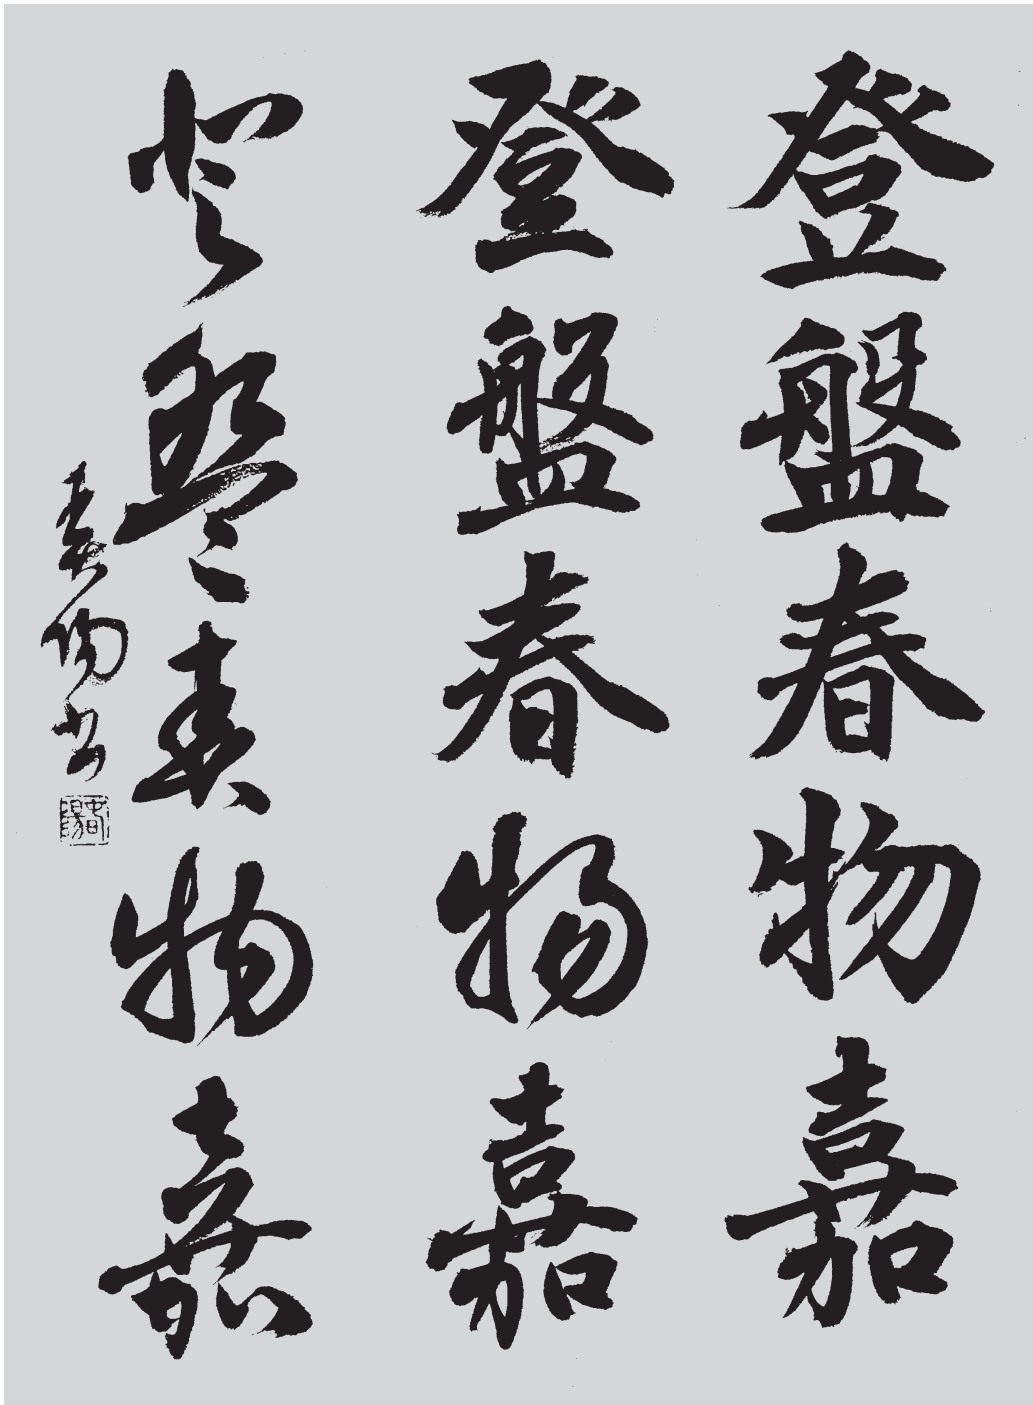 登盤春物嘉
登盤春物嘉
登盤春物嘉
春陽書